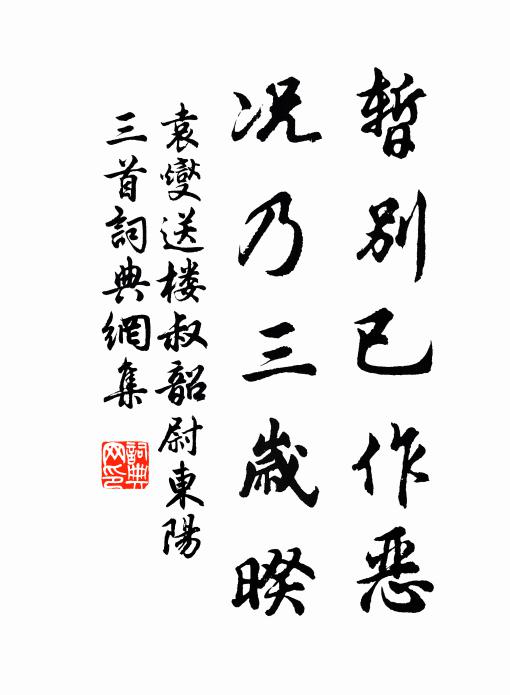 暫別已作惡
况乃三歲暌
袁燮送楼叔韶尉東陽
三首詞典網集
詞典网印